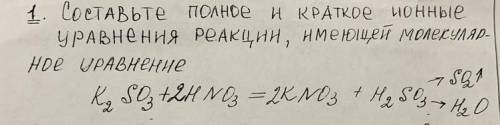 1. Составьте полное и краткое ионные
уравнения реакции, имеющей молекуляр-
ное уравнение
K₂SO₃+2HNO₃=2KNO₃ + H₂SO₃ → SO₂↑
→ H₂O